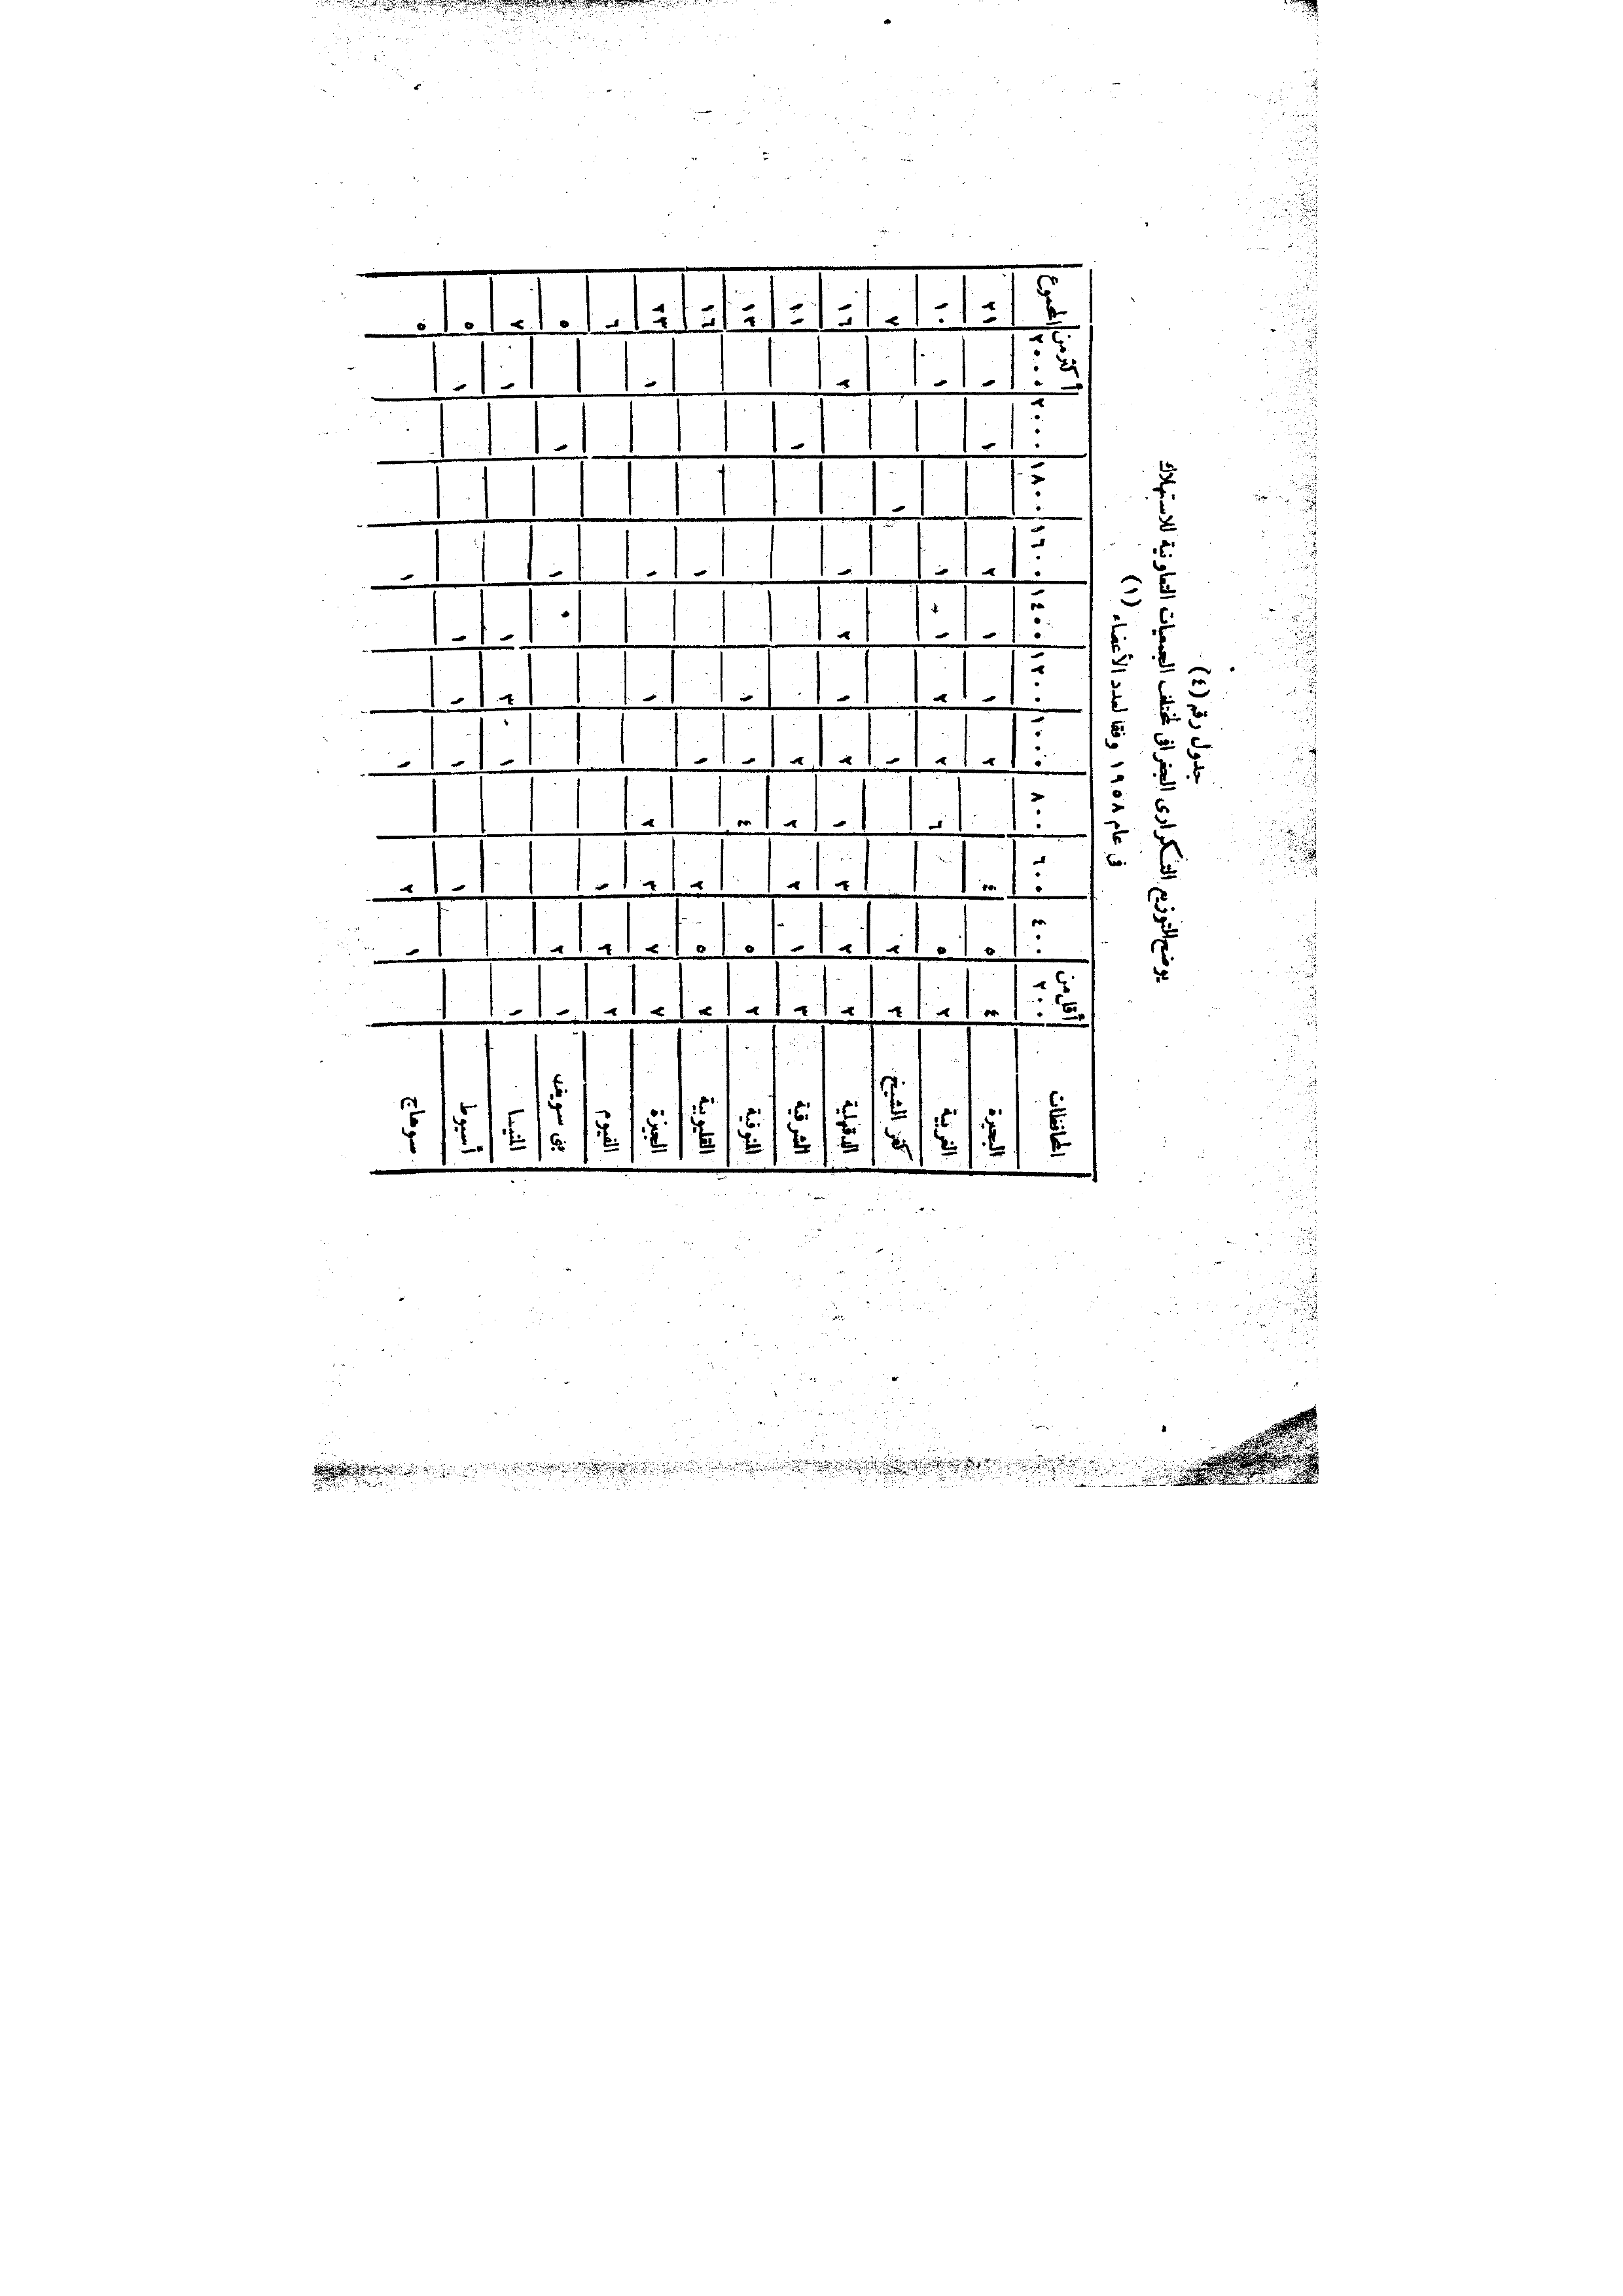 جدول رقم (٤)
يوضح التوزيع التكرارى الجغرافى لمختلف الجمعيات التعاونية للاستهلاك
فى عام ١٩٥٨ وفقا لعدد الأعضاء (١)
المحافظات أقل من ٢٠٠ ٤٠٠ ٦٠٠ ٨٠٠ ١٠٠٠ ١٢٠٠ ١٤٠٠ ١٦٠٠ ١٨٠٠ ٢٠٠٠ أكثر من ٢٠٠٠ المجموع
البحيرة ٤ ٥ ٤ ٢ ١ ١ ٢ ١ ١ ٢١
الغربية ٢ ٥ ٦ ٢ ٢ ١ ١ ١ ١٠
كفر الشيخ ٣ ٢ ١ ١ ٧
الدقهلية ٢ ٢ ٣ ١ ٢ ١ ٢ ١ ٢ ١٦
الشرقية ٣ ١ ٢ ٢ ٢ ١ ١١
المنوفية ٢ ٥ ٤ ١ ١ ١٣
القليوبية ٧ ٥ ٢ ١ ١ ١٦
الجيزة ٧ ٧ ٣ ٢ ١ ١ ١ ٢٣
الفيوم ٢ ٣ ١ ٦
بنى سويف ١ ٢ ١ ١ ٥
المنيا ١ ١ ٣ ١ ١ ٧
أسيوط ١ ١ ١ ١ ١ ٥
سوهاج ١ ٢ ١ ١ ٥